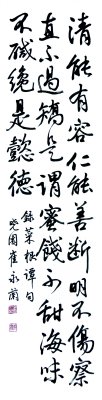 清能有容仁能善断明不傷察
直不過矯是謂蜜餞不甜海味
不鹹纔是懿德
錄菜根譚句